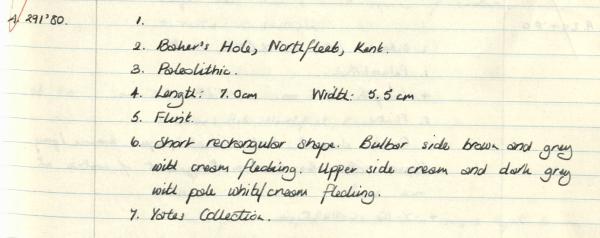 A. 291'80. 1.
2. Baker's Hole, Northfleet, Kent.
3. Paleolithic.
4. Length: 7.0cm Width: 5.5cm
5. Flint.
6. Short rectangular shape. Bulbar side brown and grey
with cream flecking. Upper side cream and dark grey
with pale white/cream flecking.
7. Yates Collection.